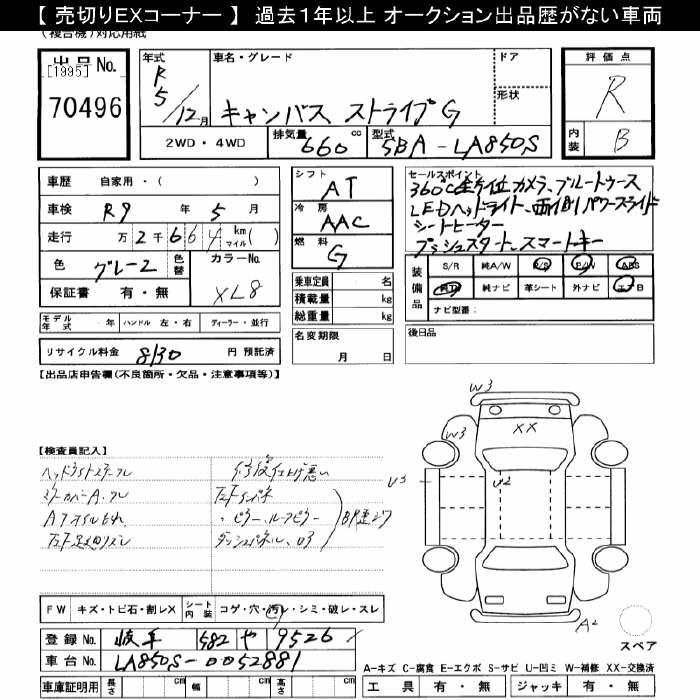 【 売切りEXコーナー 】 過去１年以上 オークション出品歴がない車両
(複合機)対応用紙
出品No.
[1995]
70496
年式
R
5/12月
車名・グレード
キャンバス ストライプG
ドア
形状
2WD・4WD
排気量
660
cc
型式
5BA-LA850S
評価点
R
内装
B
車歴 自家用・( )
車検 R9 年 5 月
走行 万 2 千 6 6 4 km マイル( )
色 グレー2 色替
カラーNo.
XL8
保証書 有・無
モデル年式 年 ハンドル 左・右 ディーラー・並行
リサイクル料金 8130 円 預託済
シフト
AT
冷房
AAC
燃料
G
乗車定員 名
積載量 kg
総重量 kg
名変期限
月 日
セールスポイント
360℃全方位カメラ、ブルートゥース
LEDヘッドライト、両側パワースライド
シートヒーター
プッシュスタート、スマートキー
装備品
S/R 純A/W P/S P/W ABS
純ナビ 革シート 外ナビ エアB
ナビ型番:
後日品
【出品店申告欄(不良箇所・欠品・注意事項等)】
【検査員記入】
修復仕上げ悪い
ピラー、ルーフピラー
W3
W3
XX
U3
U2
A2
スペア
FW キズ・トビ石・割レX
シート内装 コゲ・穴・汚レ・シミ・破レ・スレ
登録No. 岐阜 582 や 9526
車台No. LA850S-0052881
車庫証明用 長さ cm 幅 cm 高さ cm
A-キズ C-腐食 E-エクボ S-サビ U-凹ミ W-補修 XX-交換済
工具 有・無 ジャッキ 有・無